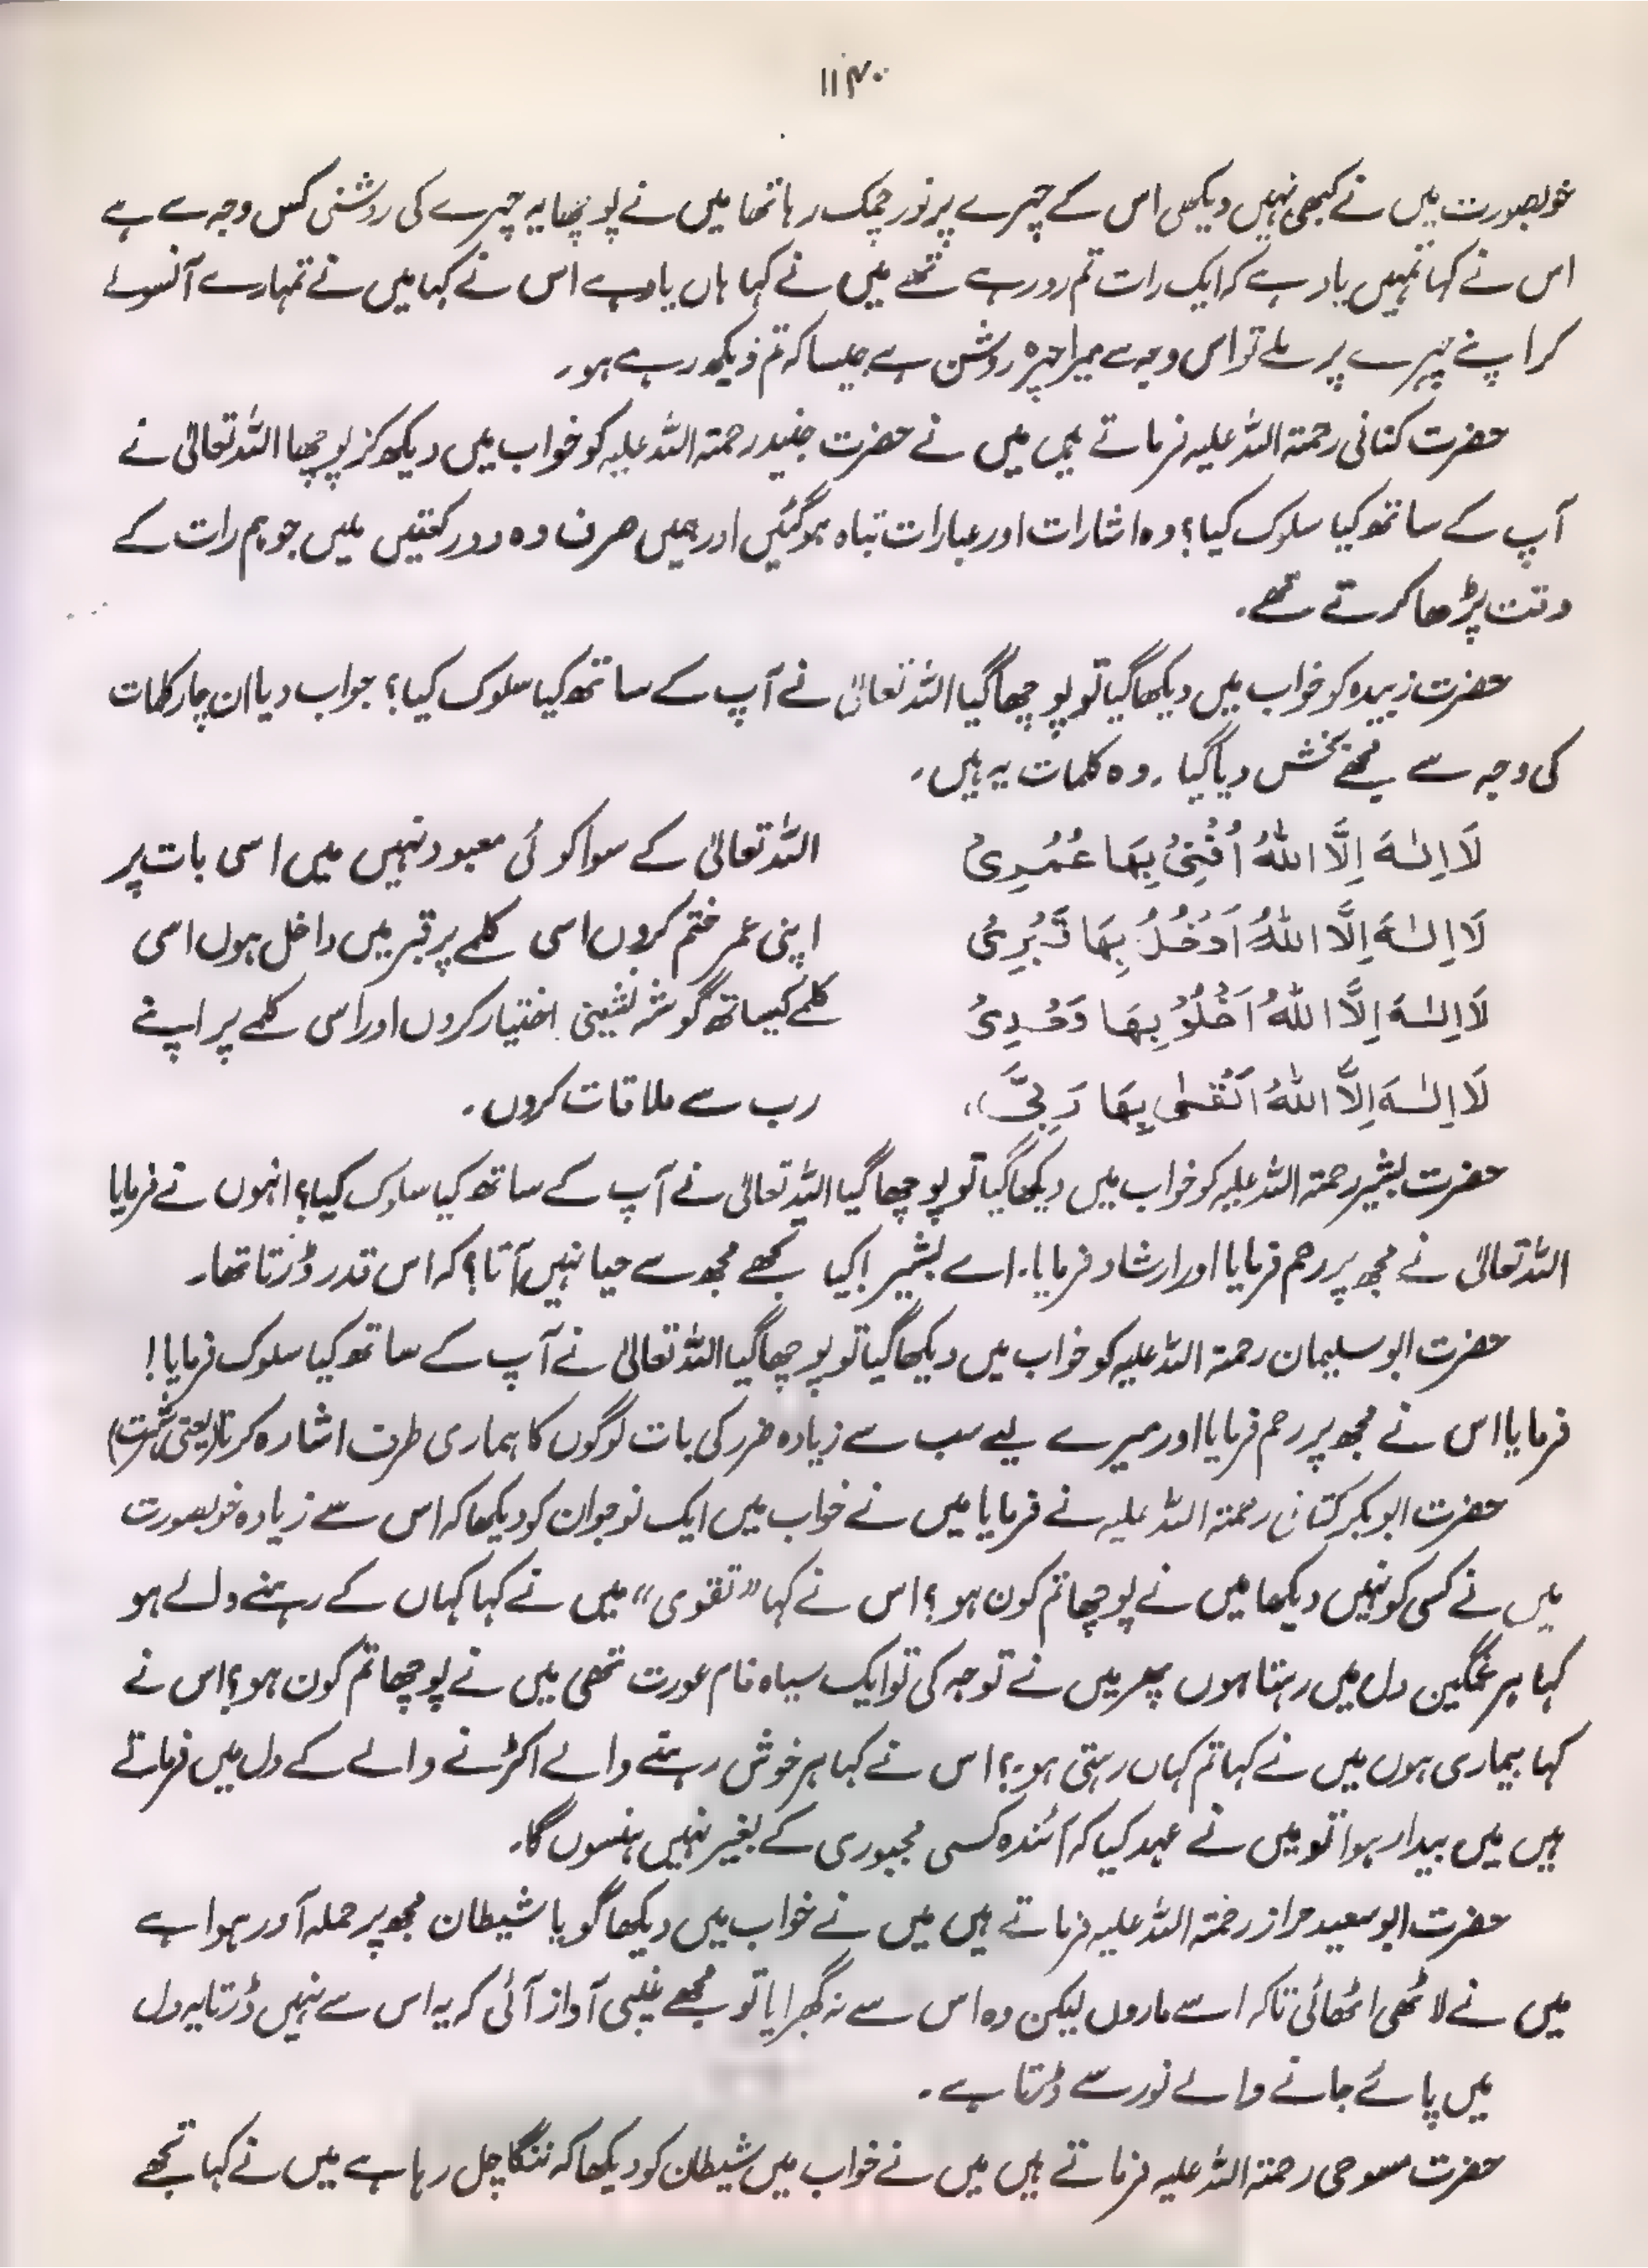 ۱۱۴۰
خوبصورت میں نے کبھی نہیں دیکھی اس کے چہرے پر نور چمک رہا تھا میں نے پوچھا یہ چہرے کی روشنی کس وجہ سے ہے
اس نے کہا تمہیں یاد ہے کہ ایک رات تم رو رہے تھے میں نے کہا ہاں یاد ہے اس نے کہا میں نے تمہارے آنسو لے
کر اپنے چہرے پر ملے تو اس وجہ سے میرا چہرہ روشن ہے جیسا کہ تم دیکھ رہے ہو۔
حضرت کتانی رحمۃ اللہ علیہ فرماتے ہیں میں نے حضرت جنید رحمۃ اللہ علیہ کو خواب میں دیکھ کر پوچھا اللہ تعالیٰ نے
آپ کے ساتھ کیا سلوک کیا؟ وہ اشارات اور عبارات تباہ ہو گئیں اور ہمیں صرف وہ دو رکعتیں ملیں جو ہم رات کے
وقت پڑھا کرتے تھے۔
حضرت زبیدہ کو خواب میں دیکھا گیا تو پوچھا گیا اللہ تعالیٰ نے آپ کے ساتھ کیا سلوک کیا؟ جواب دیا ان چار کلمات
کی وجہ سے مجھے بخش دیا گیا۔ وہ کلمات یہ ہیں۔
لَا اِلٰہَ اِلَّا اللہُ اُفْنِیْ بِھَا عُمُرِیْ اللہ تعالیٰ کے سوا کوئی معبود نہیں میں اسی بات پر
لَا اِلٰہَ اِلَّا اللہُ اَدْخُلُ بِھَا قَبْرِیْ اپنی عمر ختم کروں اسی کلمے پر قبر میں داخل ہوں اسی
لَا اِلٰہَ اِلَّا اللہُ اَخْلُوْ بِھَا وَحْدِیْ کلمے کیساتھ گوشہ نشینی اختیار کروں اور اسی کلمے پر اپنے
لَا اِلٰہَ اِلَّا اللہُ اَلْقٰی بِھَا رَبِّیْ،، رب سے ملاقات کروں۔
حضرت بشیر رحمۃ اللہ علیہ کو خواب میں دیکھا گیا تو پوچھا گیا اللہ تعالیٰ نے آپ کے ساتھ کیا سلوک کیا؟ انہوں نے فرمایا
اللہ تعالیٰ نے مجھ پر رحم فرمایا اور ارشاد فرمایا۔ اے بشیر! کیا تجھے مجھ سے حیا نہیں آتا؟ کہ اس قدر ڈرتا تھا۔
حضرت ابو سلیمان رحمۃ اللہ علیہ کو خواب میں دیکھا گیا تو پوچھا گیا اللہ تعالیٰ نے آپ کے ساتھ کیا سلوک فرمایا!
فرمایا اس نے مجھ پر رحم فرمایا اور میرے لیے سب سے زیادہ ضرر کی بات لوگوں کا ہماری طرف اشارہ کرنا (یعنی شہرت)
حضرت ابوبکر کتانی رحمۃ اللہ علیہ نے فرمایا میں نے خواب میں ایک نوجوان کو دیکھا کہ اس سے زیادہ خوبصورت
میں نے کسی کو نہیں دیکھا میں نے پوچھا تم کون ہو؟ اس نے کہا "تقوی" میں نے کہا کہاں کے رہنے والے ہو
کہا ہر غمگین دل میں رہتا ہوں پھر میں نے توجہ کی تو ایک سیاہ فام عورت تھی میں نے پوچھا تم کون ہو؟ اس نے
کہا بیماری ہوں میں نے کہا تم کہاں رہتی ہو۔؟ اس نے کہا ہر خوش رہنے والے اکڑنے والے کے دل میں فرماتے
ہیں میں بیدار ہوا تو میں نے عہد کیا کہ آئندہ کسی مجبوری کے بغیر نہیں ہنسوں گا۔
حضرت ابو سعید حراز رحمۃ اللہ علیہ فرماتے ہیں میں نے خواب میں دیکھا گویا شیطان مجھ پر حملہ آور ہوا ہے
میں نے لاٹھی اٹھائی تاکہ اسے ماروں لیکن وہ اس سے نہ گھبرایا تو مجھے غیبی آواز آئی کہ یہ اس سے نہیں ڈرتا یہ دل
میں پائے جانے والے نور سے ڈرتا ہے۔
حضرت مسوحی رحمۃ اللہ علیہ فرماتے ہیں میں نے خواب میں شیطان کو دیکھا کہ ننگا چل رہا ہے میں نے کہا تجھے